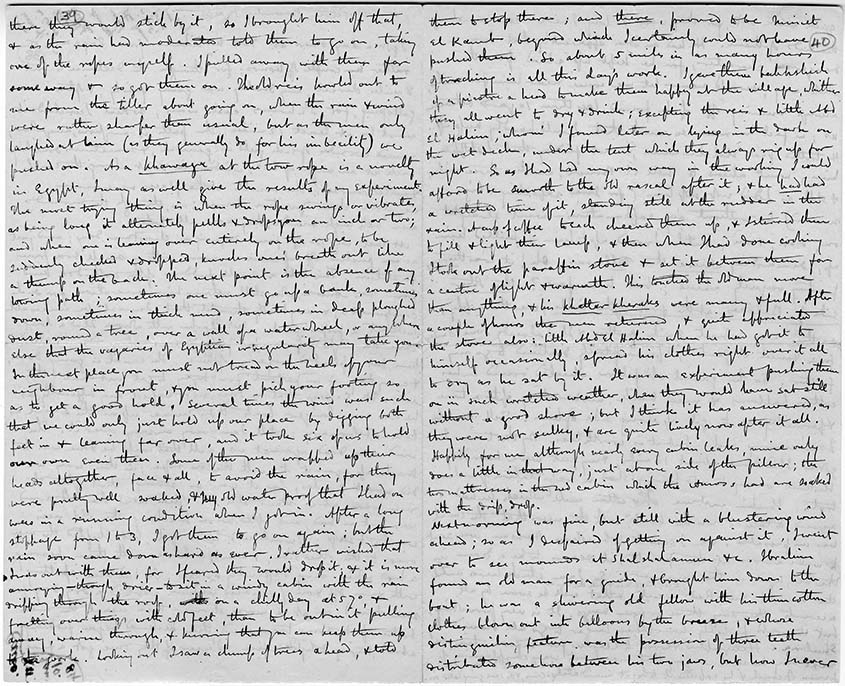 39
there they would stick by it, so I brought him off that,
& as the rain had moderated told them to go on, taking
one of the ropes myself. I pulled away with them for
some way & so got them on. The old reis howled out to
me from the tiller about going on, when the rain & wind
were rather sharper than usual, but as the men only
laughed at him (as they generally do for his imbecility) we
pushed on. As a khawaga at the tow rope is a novelty
in Egypt, I may as well give the results of my experiment.
The most trying thing is when the rope swings or vibrates,
as being long it alternately pulls & drops you an inch or two;
and when one is leaning over entirely on the rope, to be
suddenly checked & dropped, knocks one's breath out like
a thump on the back. The next point is the absence of any
towing path; sometimes one must go up a bank sometimes
down, sometimes in thick mud sometimes in deep ploughed
dust, round a tree, over a wall of a waterwheel, or anywhere
else that the vagaries of Egyptian irregularity may take you.
In the next place you must not tread on the heels of your
neighbour in front, & you must pick your footing so
as to get a good hold. Several times the wind was such
that we could only just hold up our place by digging both
feet in & leaning far over, and it took six of us to hold
our own even then. Some of the men wrapped up their
heads altogether, face & all, to avoid the rain, for they
were pretty well soaked & my old waterproof that I had on
was in a running condition when I got in. After a long
stoppage from 1 to 3, I got them to go on again; but the
rain soon came down as hard as ever, I rather wished that
I was out with them, for I feared they would drop it, & it is more
annoying though drier to sit in a windy cabin with the rain
dripping through the roof, on a chill day at 57°, &
fretting over things with , than to be out in it pulling
away, warm through, & knowing that you can keep them up
to the work. Looking out I saw a clump of trees ahead, & told
40
them to stop there; and there, proved to be Miniet
El Kamh, beyond which I certainly could not have
pushed them. So about 5 miles in as many hours
of tracking is all this day's work. I gave them bakhshish
of a piastre a head to make them happy at the village whither
they all went to dry & drink; excepting the reis & little Abd
El Halim whom I found later on lying in the dark on
the wet decks, under the tent which they always rig up for
night. So as I had had my own way in the working I could
afford to be smooth to the old rascal after it; & he had had
a wretched time of it, standing still at the rudder in the
rain. A cup of coffee to each cheered them up, & I stirred them
to fill & light their lamp, & then when I had done cooking
I took out the paraffin stove & set it between them for
a centre of light & warmth. This touched the old man more
than anything, & his khetter kheraks were many & full. After
a couple of hours the men returned & quite appreciated
the stove also; little Abd el Halim when he had got it to
himself occasionally, spread his clothes right over it all
to dry as he sat by it. It was an experiment pushing them
on in such wretched weather, when they would have sat still
without a good shove; but I think it has answered, as
they were not sulky, & are quite lively now after it all.
Happily for me, although nearly every cabin leaks, mine only
does a little in that way, just at one side of the pillow; the
two mattresses in the 2nd cabin which the Amoss had are soaked
with the drip, drop.
Next morning was fine, but still with a blustering wind
ahead; so as I despaired of getting on against it, I went
over to see mounds at Shelshalamun &c. Ibrahim
found an old man for a guide, & brought him down to the
boat; he was a shivering old fellow with his thin cotton
clothes blown out into balloons by the breeze, & whose
distinguishing feature was the possession of three teeth
distributed somehow between his two jaws, but how I never